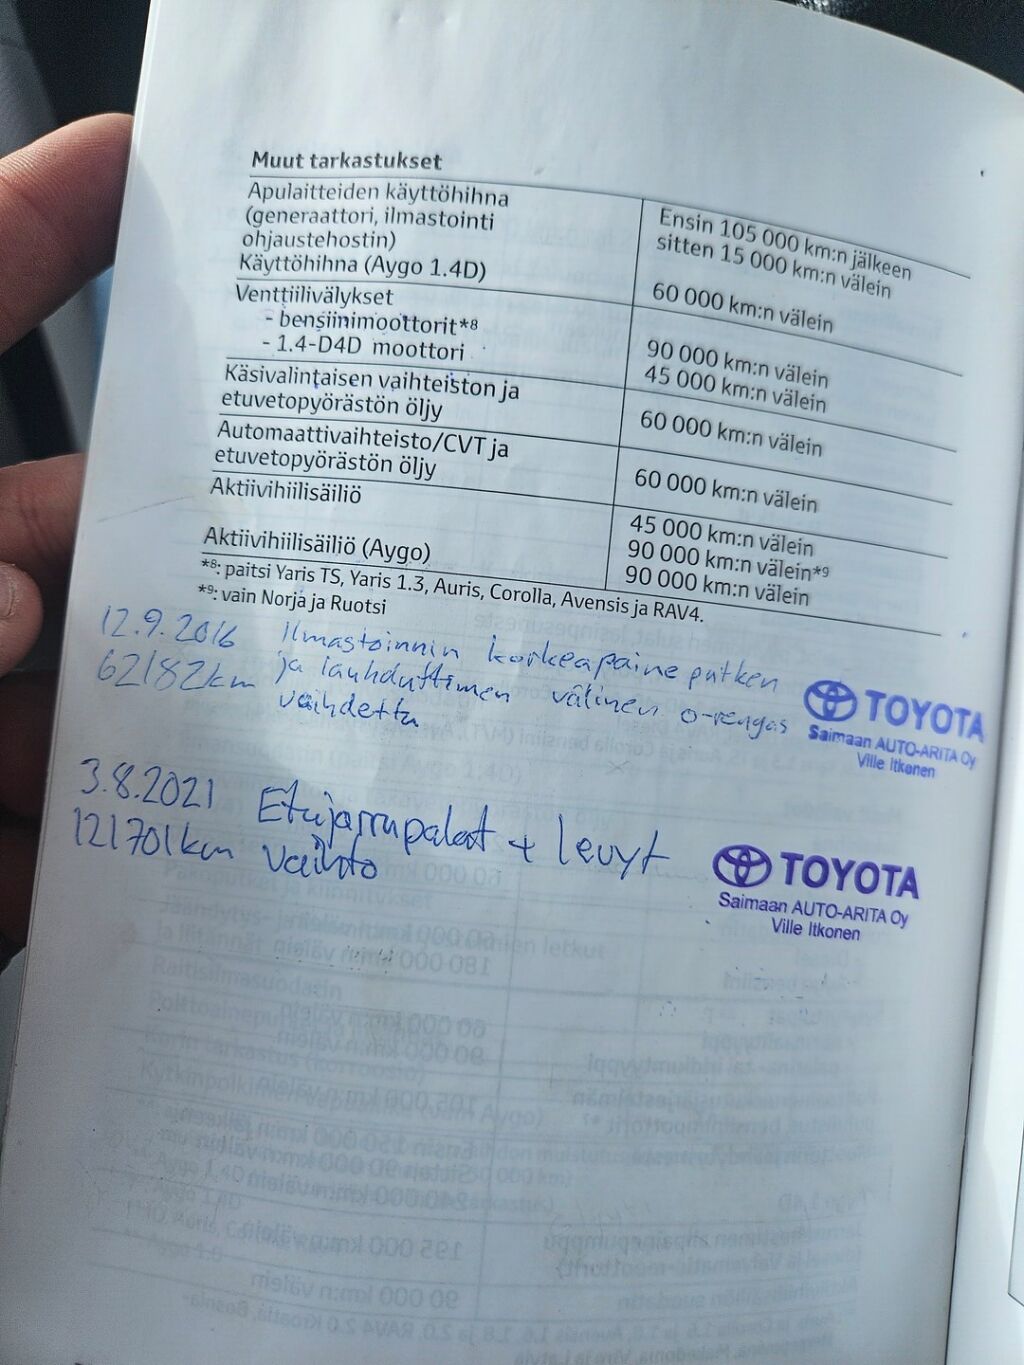 Muut tarkastukset
Apulaitteiden käyttöhihna
(generaattori, ilmastointi
ohjaustehostin)
Ensin 105 000 km:n jälkeen
sitten 15 000 km:n välein
Käyttöhihna (Aygo 1.4D)
60 000 km:n välein
Venttiilivälykset
- bensiinimoottorit*8
90 000 km:n välein
- 1.4-D4D moottori
45 000 km:n välein
Käsivalintaisen vaihteiston ja
etuvetopyörästön öljy
60 000 km:n välein
Automaattivaihteisto/CVT ja
etuvetopyörästön öljy
60 000 km:n välein
Aktiivihiilisäiliö
45 000 km:n välein
90 000 km:n välein*9
Aktiivihiilisäiliö (Aygo)
90 000 km:n välein
*8: paitsi Yaris TS, Yaris 1.3, Auris, Corolla, Avensis ja RAV4.
*9: vain Norja ja Ruotsi
12.9.2016 Ilmastoinnin korkeapaineputken
62182km ja lauhduttimen välinen o-rengas
vaihdettu
TOYOTA
Saimaan AUTO-ARITA Oy
Ville Itkonen
3.8.2021 Etujarrupalat + levyt
121701km vaihto
TOYOTA
Saimaan AUTO-ARITA Oy
Ville Itkonen